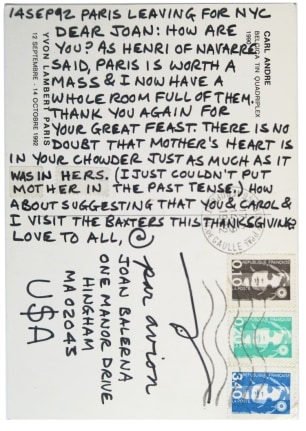 14SEP92 PARIS LEAVING FOR NYC
DEAR JOAN: HOW ARE
YOU? AS HENRI OF NAVARRE
SAID, PARIS IS WORTH A
MASS & I NOW HAVE A
WHOLE ROOM FULL OF THEM.
THANK YOU AGAIN FOR
YOUR GREAT FEAST. THERE IS NO
DOUBT THAT MOTHER'S HEART IS
IN YOUR CHOWDER JUST AS MUCH AS IT
WAS IN HERS. (I JUST COULDN'T PUT
MOTHER IN THE PAST TENSE.) HOW
ABOUT SUGGESTING THAT YOU & CAROL &
I VISIT THE BAXTERS THIS THANKSGIVING
LOVE TO ALL,
CARL ANDRE
BELGICA TIN QUADRIPLEX
1990
YVON LAMBERT PARIS
12 SEPTEMBRE - 14 OCTOBRE 1992
par avion
JOAN BALERNA
ONE MANOR DRIVE
HINGHAM
MA 02043
U$A
GAULLE
REPUBLIQUE FRANÇAISE
0,10
LA POSTE
3,40
LA POSTE